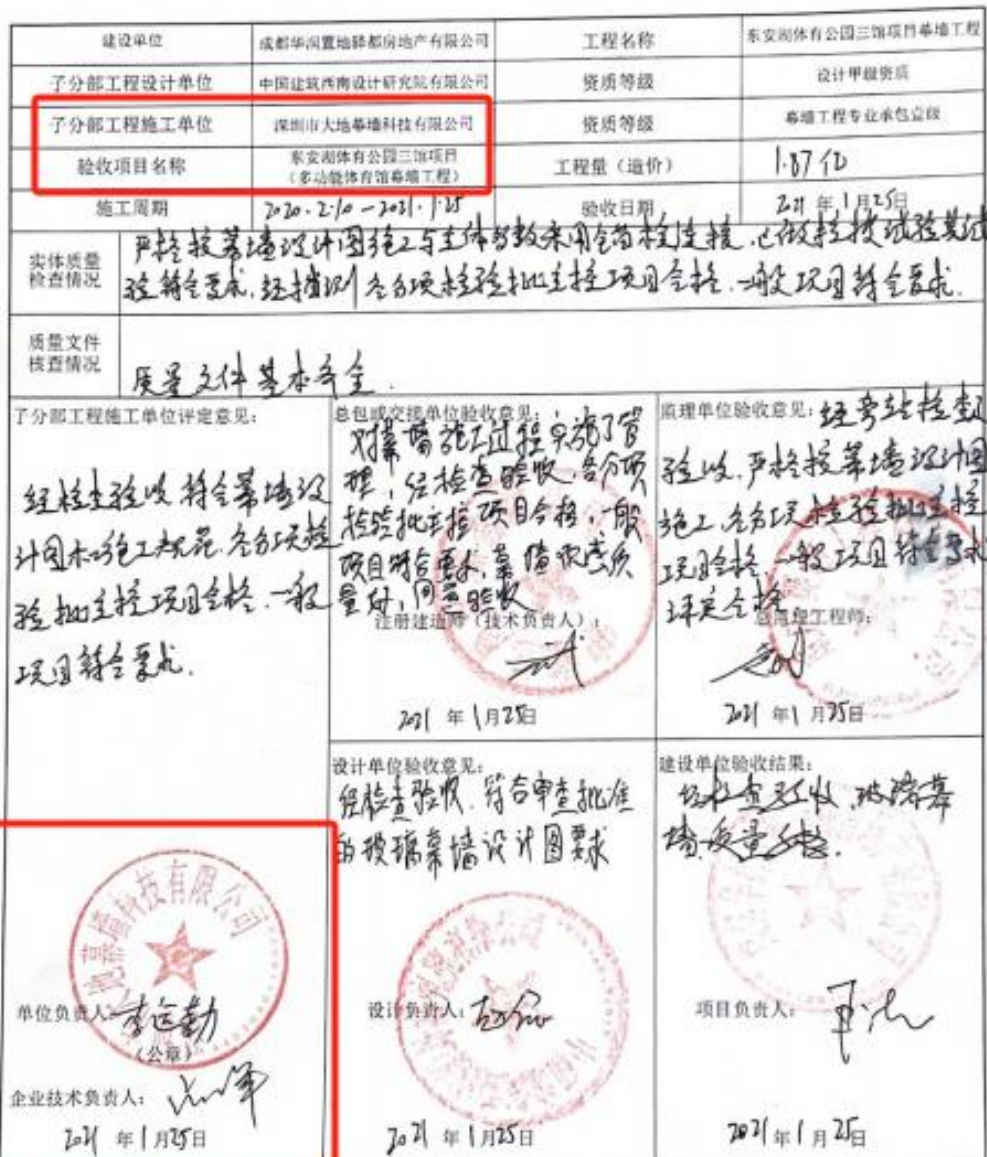 建设单位
成都华润置地驿都房地产有限公司
工程名称
东安湖体育公园三馆项目幕墙工程
子分部工程设计单位
中国建筑西南设计研究院有限公司
资质等级
设计甲级资质
子分部工程施工单位
深圳市大地幕墙科技有限公司
资质等级
幕墙工程专业承包壹级
验收项目名称
东安湖体育公园三馆项目
（多功能体育馆幕墙工程）
工程量（造价）
1.87亿
施工周期
2020.2.10-2021.1.25
验收日期
2021年1月25日
实体质量
检查情况
严格按幕墙设计图施工与主体
验符合要求.经 各分项检验批主控项目合格.一般项目符合要求.
质量文件
核查情况
质量文件基本齐全.
子分部工程施工单位评定意见：
经检查验收.符合幕墙设
计图 施工规范.各分项检
验批主控项目合格.一般
项目符合要求.
总包或交接单位验收意见：
对幕墙施工过程实施了管
理，经检查验收.各分项
检验批主控项目合格，一般
项目符合要求，幕墙观感质
量好，同意验收
注册建造师（技术负责人）：
2021年1月25日
监理单位验收意见：经旁站检查及
验收.严格按幕墙设计图
施工.各分项检验批主控
项目合格.一般项目符合要求
评定合格
总监理工程师：
2021年1月25日
幕墙科技有限公司
单位负责人：李运勤
（公章）
企业技术负责人：
2021年1月25日
设计单位验收意见：
经检查验收.符合审查批准
的玻璃幕墙设计图要求
设计负责人：
2021年1月25日
建设单位验收结果：
经检查验收.玻璃幕
墙质量合格.
项目负责人：
2021年1月25日